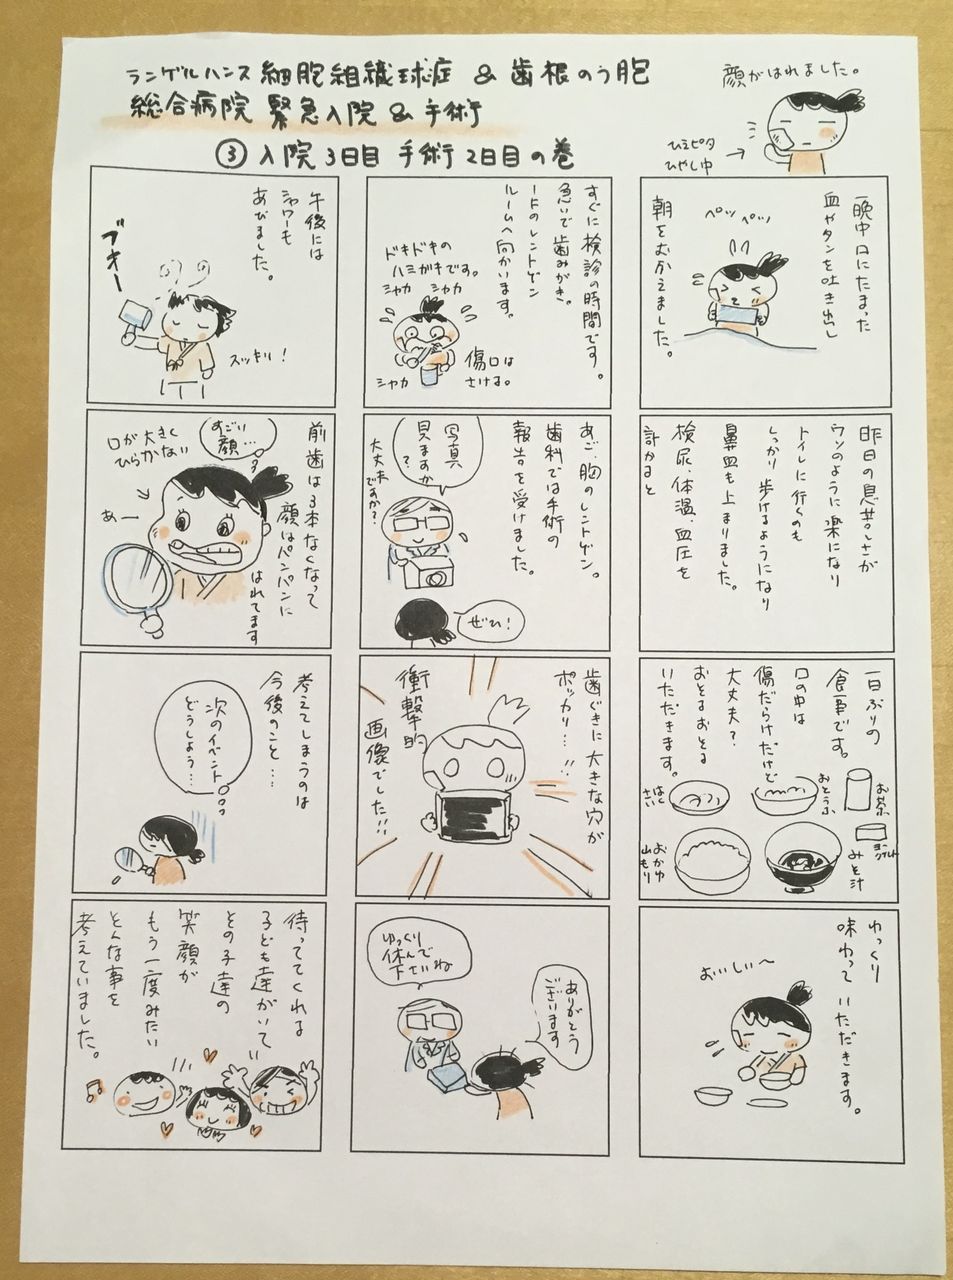 ランゲルハンス 細胞組織球症 & 歯根のう胞
総合病院 緊急入院 & 手術
③ 入院3日目 手術2日目の巻
顔がはれました。
ひえピタ
ひやし中
一晩中口にたまった
血やタンを吐き出し
朝をむかえました。
ペッ ペッ
昨日の息苦しさが
ウソのように楽になり
トイレに行くのも
しっかり歩けるようになり
鼻血も止まりました。
検尿、体温、血圧を
計かると
一日ぶりの
食事です。
口の中は
傷だらけだけど
大丈夫?
おそるおそる
いただきます。
お茶
おとうふ
はくさい
ヨーグルト
みそ汁
おかゆ
山もり
ゆっくり
味わって いただきます。
おいしい〜
すぐに検診の時間です。
急いで歯みがき。
ードのレントゲン
ルームへ向かいます。
ドキドキの
ハミガキです。
シャカ シャカ
シャカ
傷口は
さける。
あご、胸のレントゲン。
歯科では手術の
報告を受けました。
写真
見ますか
?
大丈夫
ですか?
ぜひ!
歯ぐきに大きな穴が
ポッカリ…!!
衝撃的
画像でした!!
ゆっくり
休んで
下さいね
ありがとう
ございます
午後には
シャワーも
あびました。
ブオー
スッキリ!
前歯は3本なくなって
顔はパンパンに
はれてます
すごい
顔…
口が大きく
ひらかない
あー
考えてしまうのは
今後のこと…
次のイベント
どうしよう…
待っててくれる
子ども達がいて
その子達の
笑顔が
もう一度みたい
そんな事を
考えていました。